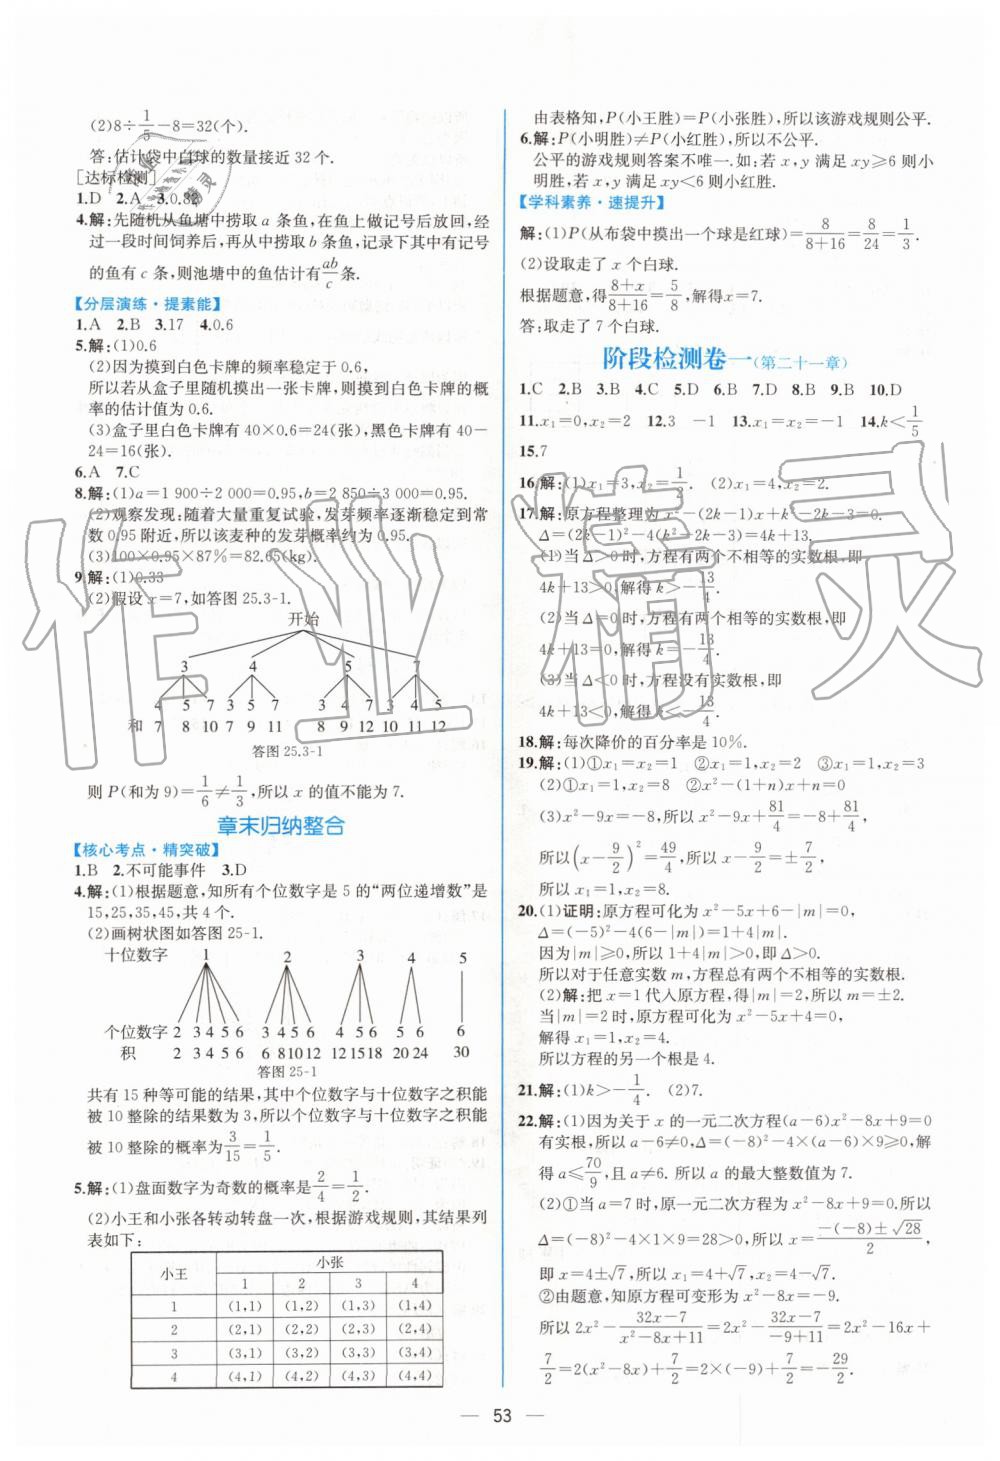 (2)8÷1/5−8=32(个).
答:估计袋中白球的数量接近 32 个.
[达标检测]
1.D 2.A 3.0.82
4.解:先随机从鱼塘中捞取 a 条鱼,在鱼上做记号后放回,经
过一段时间饲养后,再从中捞取 b 条鱼,记录下其中有记号
的鱼有 c 条,则池塘中的鱼估计有ab/c条.
【分层演练·提素能】
1.A 2.B 3.17 4.0.6
5.解:(1)0.6
(2)因为摸到白色卡牌的频率稳定于 0.6,
所以若从盒子里随机摸出一张卡牌,则摸到白色卡牌的概
率的估计值为 0.6.
(3)盒子里白色卡牌有 40×0.6=24(张),黑色卡牌有 40−
24=16(张).
6.A 7.C
8.解:(1)a=1 900÷2 000=0.95,b=2 850÷3 000=0.95.
(2)观察发现:随着大量重复试验,发芽频率逐渐稳定到常
数 0.95 附近,所以该麦种的发芽概率约为 0.95.
(3)100×0.95×87%=82.65(kg).
9.解:(1)0.33
(2)假设 x=7,如答图 25.3-1.
开始
3 4 5 7
4 5 7 3 5 7 3 4 7 3 4 5
和 7 8 10 7 9 11 8 9 12 10 11 12
答图 25.3-1
则 P(和为 9)=1/6≠1/3,所以 x 的值不能为 7.
章末归纳整合
【核心考点·精突破】
1.B 2.不可能事件 3.D
4.解:(1)根据题意,知所有个位数字是 5 的“两位递增数”是
15,25,35,45,共 4 个.
(2)画树状图如答图 25-1.
十位数字 1 2 3 4 5
个位数字 2 3 4 5 6 3 4 5 6 4 5 6 5 6 6
积 2 3 4 5 6 6 8 10 12 12 15 18 20 24 30
答图 25-1
共有 15 种等可能的结果,其中个位数字与十位数字之积能
被 10 整除的结果数为 3,所以个位数字与十位数字之积能
被 10 整除的概率为3/15=1/5.
5.解:(1)盘面数字为奇数的概率是2/4=1/2.
(2)小王和小张各转动转盘一次,根据游戏规则,其结果列
表如下:
小王 小张
1 2 3 4
1 (1,1) (1,2) (1,3) (1,4)
2 (2,1) (2,2) (2,3) (2,4)
3 (3,1) (3,2) (3,3) (3,4)
4 (4,1) (4,2) (4,3) (4,4)
由表格知,P(小王胜)=P(小张胜),所以该游戏规则公平.
6.解:P(小明胜)≠P(小红胜),所以不公平.
公平的游戏规则答案不唯一.如:若 x,y 满足 xy≥6 则小
明胜,若 x,y 满足 xy<6 则小红胜.
【学科素养·速提升】
解:(1)P(从布袋中摸出一个球是红球)=8/(8+16)=8/24=1/3.
(2)设取走了 x 个白球.
根据题意,得(8+x)/(8+16)=5/8,解得 x=7.
答:取走了 7 个白球.
阶段检测卷一(第二十一章)
1.C 2.B 3.B 4.C 5.D 6.B 7.D 8.B 9.B 10.D
11.x₁=0,x₂=2 12.3 −1 13.x₁=x₂=−1 14.k<1/5
15.7
16.解:(1)x₁=3,x₂=1/2. (2)x₁=4,x₂=2.
17.解:原方程整理为 x²−(2k−1)x+k²−2k−3=0.
Δ=(2k−1)²−4(k²−2k−3)=4k+13.
(1)当 Δ>0 时,方程有两个不相等的实数根,即
4k+13>0,解得 k>−13/4.
(2)当 Δ=0 时,方程有两个相等的实数根,即
4k+13=0,解得 k=−13/4.
(3)当 Δ<0 时,方程没有实数根,即
4k+13<0,解得 k<−13/4.
18.解:每次降价的百分率是 10%.
19.解:(1)①x₁=x₂=1 ②x₁=1,x₂=2 ③x₁=1,x₂=3
(2)①x₁=1,x₂=8 ②x²−(1+n)x+n=0
(3)x²−9x=−8,所以 x²−9x+81/4=−8+81/4,
所以(x−9/2)²=49/4,所以 x−9/2=±7/2,
所以 x₁=1,x₂=8.
20.(1)证明:原方程可化为 x²−5x+6−|m|=0,
Δ=(−5)²−4(6−|m|)=1+4|m|.
因为|m|≥0,所以 1+4|m|>0,即 Δ>0.
所以对于任意实数 m,方程总有两个不相等的实数根.
(2)解:把 x=1 代入原方程,得|m|=2,所以 m=±2.
当|m|=2 时,原方程可化为 x²−5x+4=0,
解得 x₁=1,x₂=4.
所以方程的另一个根是 4.
21.解:(1)k>−1/4. (2)7.
22.解:(1)因为关于 x 的一元二次方程(a−6)x²−8x+9=0
有实根,所以 a−6≠0,Δ=(−8)²−4×(a−6)×9≥0,解
得 a≤70/9,且 a≠6. 所以 a 的最大整数值为 7.
(2)①当 a=7 时,原一元二次方程为 x²−8x+9=0,所以
Δ=(−8)²−4×1×9=28>0,所以 x=(−(−8)±√28)/2,
即 x=4±√7,所以 x₁=4+√7,x₂=4−√7.
②由题意,知原方程可变形为 x²−8x=−9.
所以 2x²−(32x−7)/(x²−8x+11)=2x²−(32x−7)/(−9+11)=2x²−16x+
7/2=2(x²−8x)+7/2=2×(−9)+7/2=−29/2.
— 53 —
作业精灵